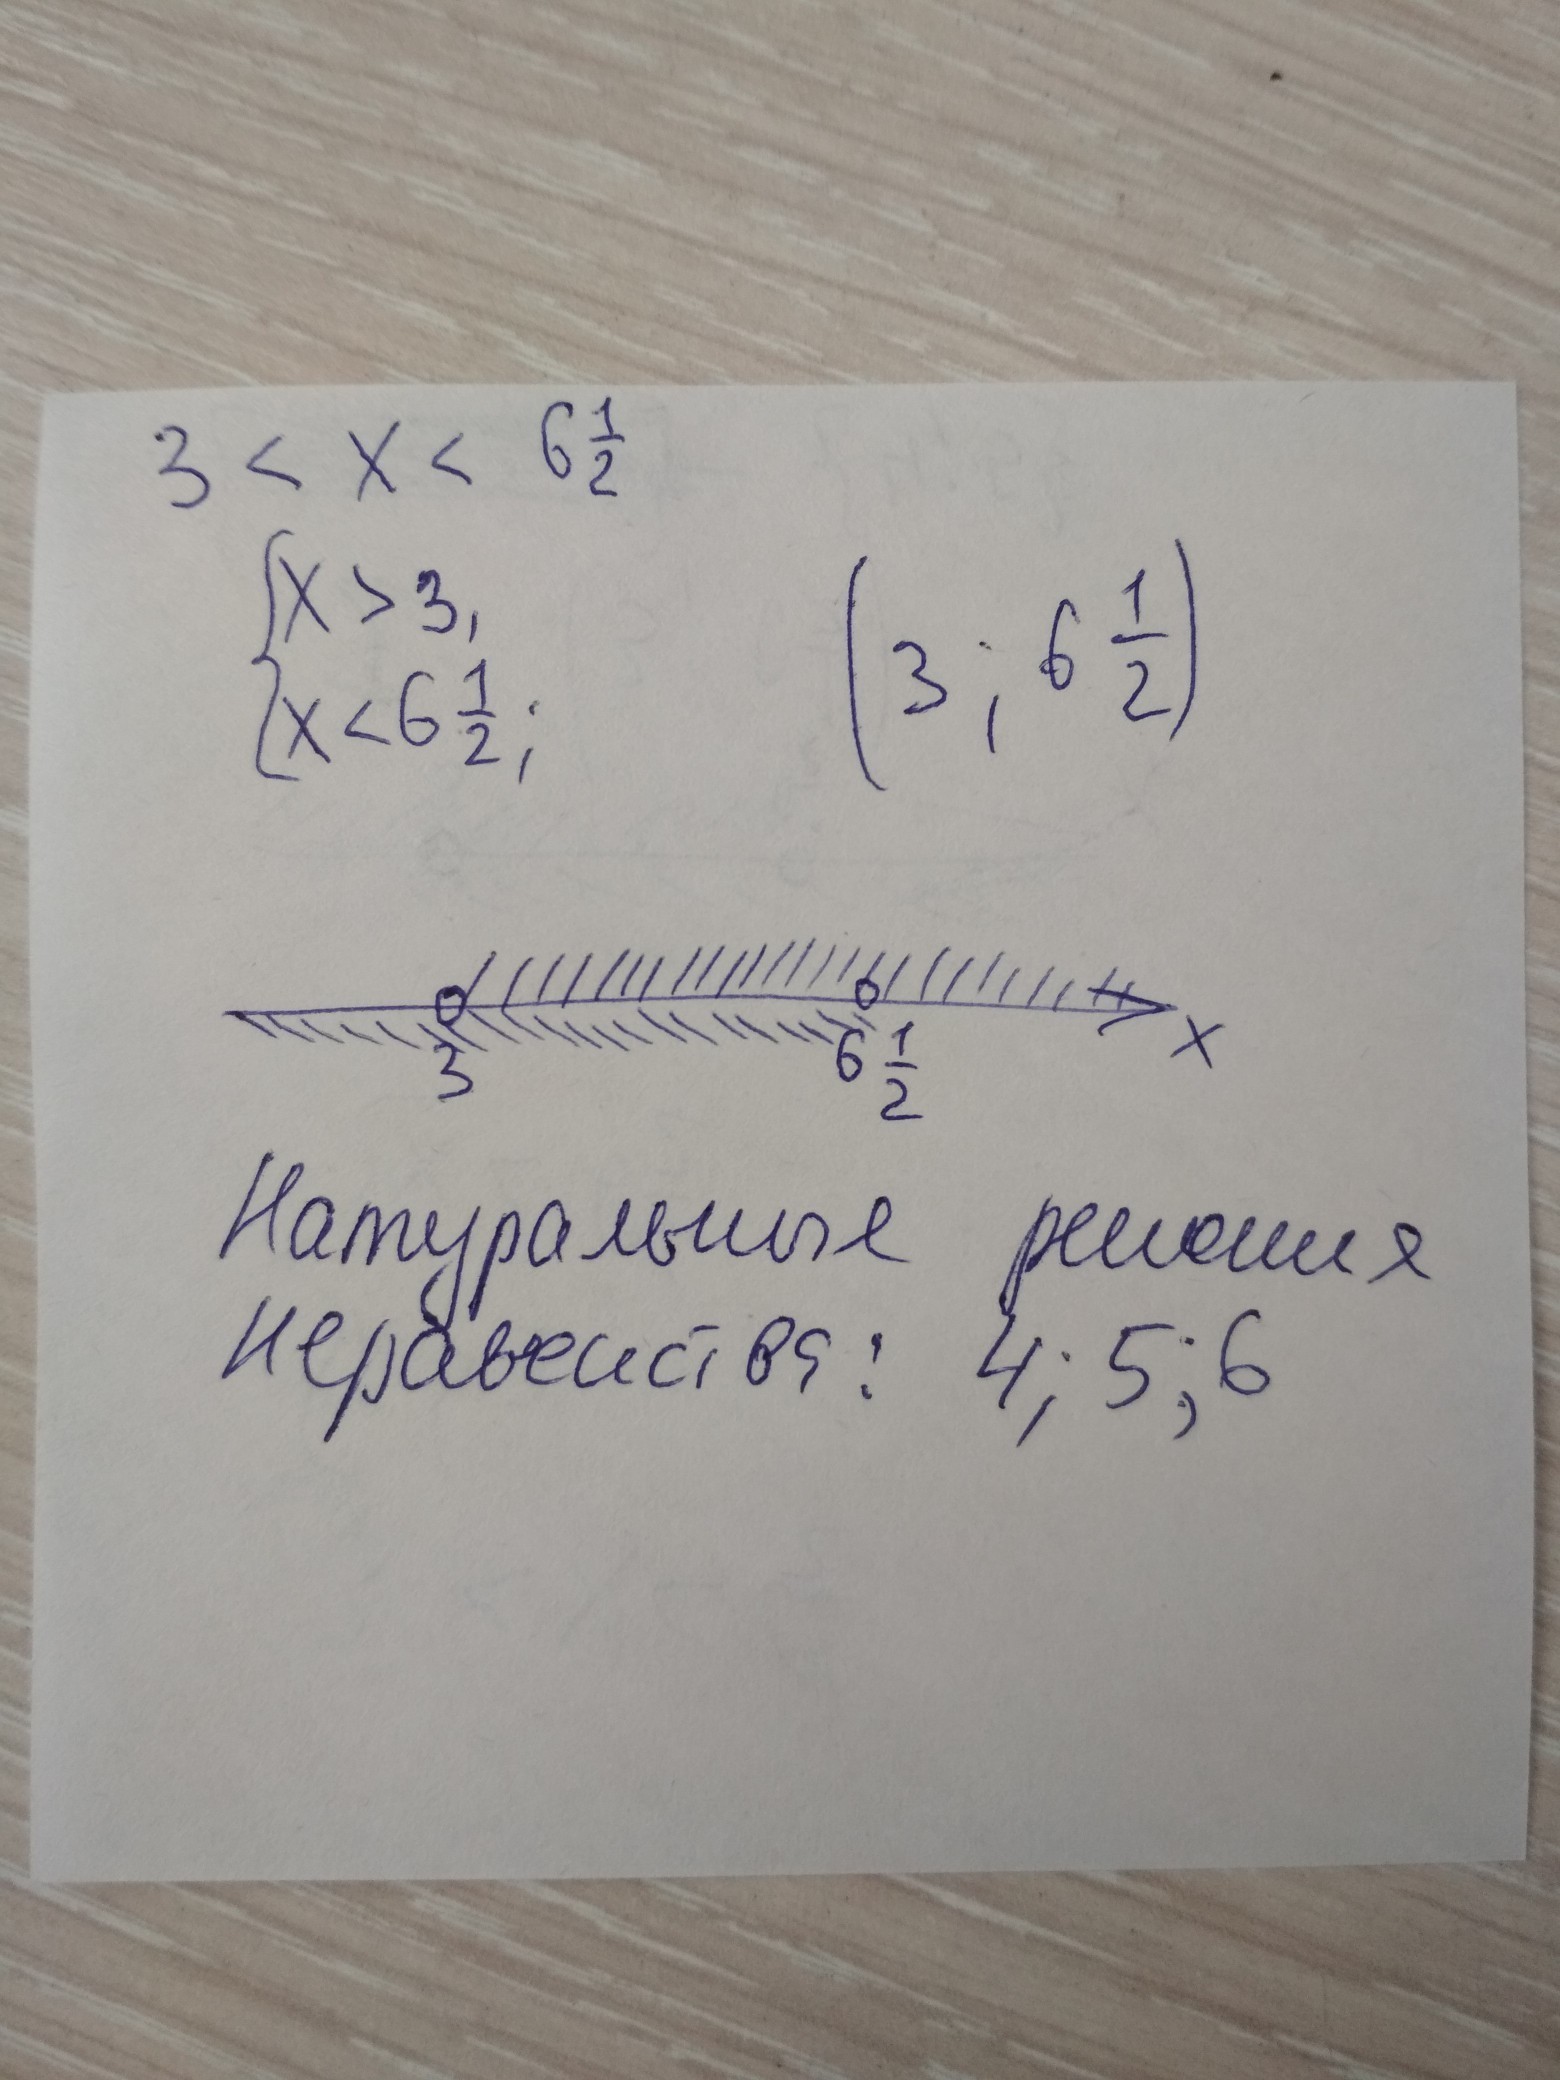 3 < x < 6 1/2
{x > 3,
{x < 6 1/2;
(3; 6 1/2)
3 6 1/2 x
Натуральные решения
неравенства: 4; 5; 6